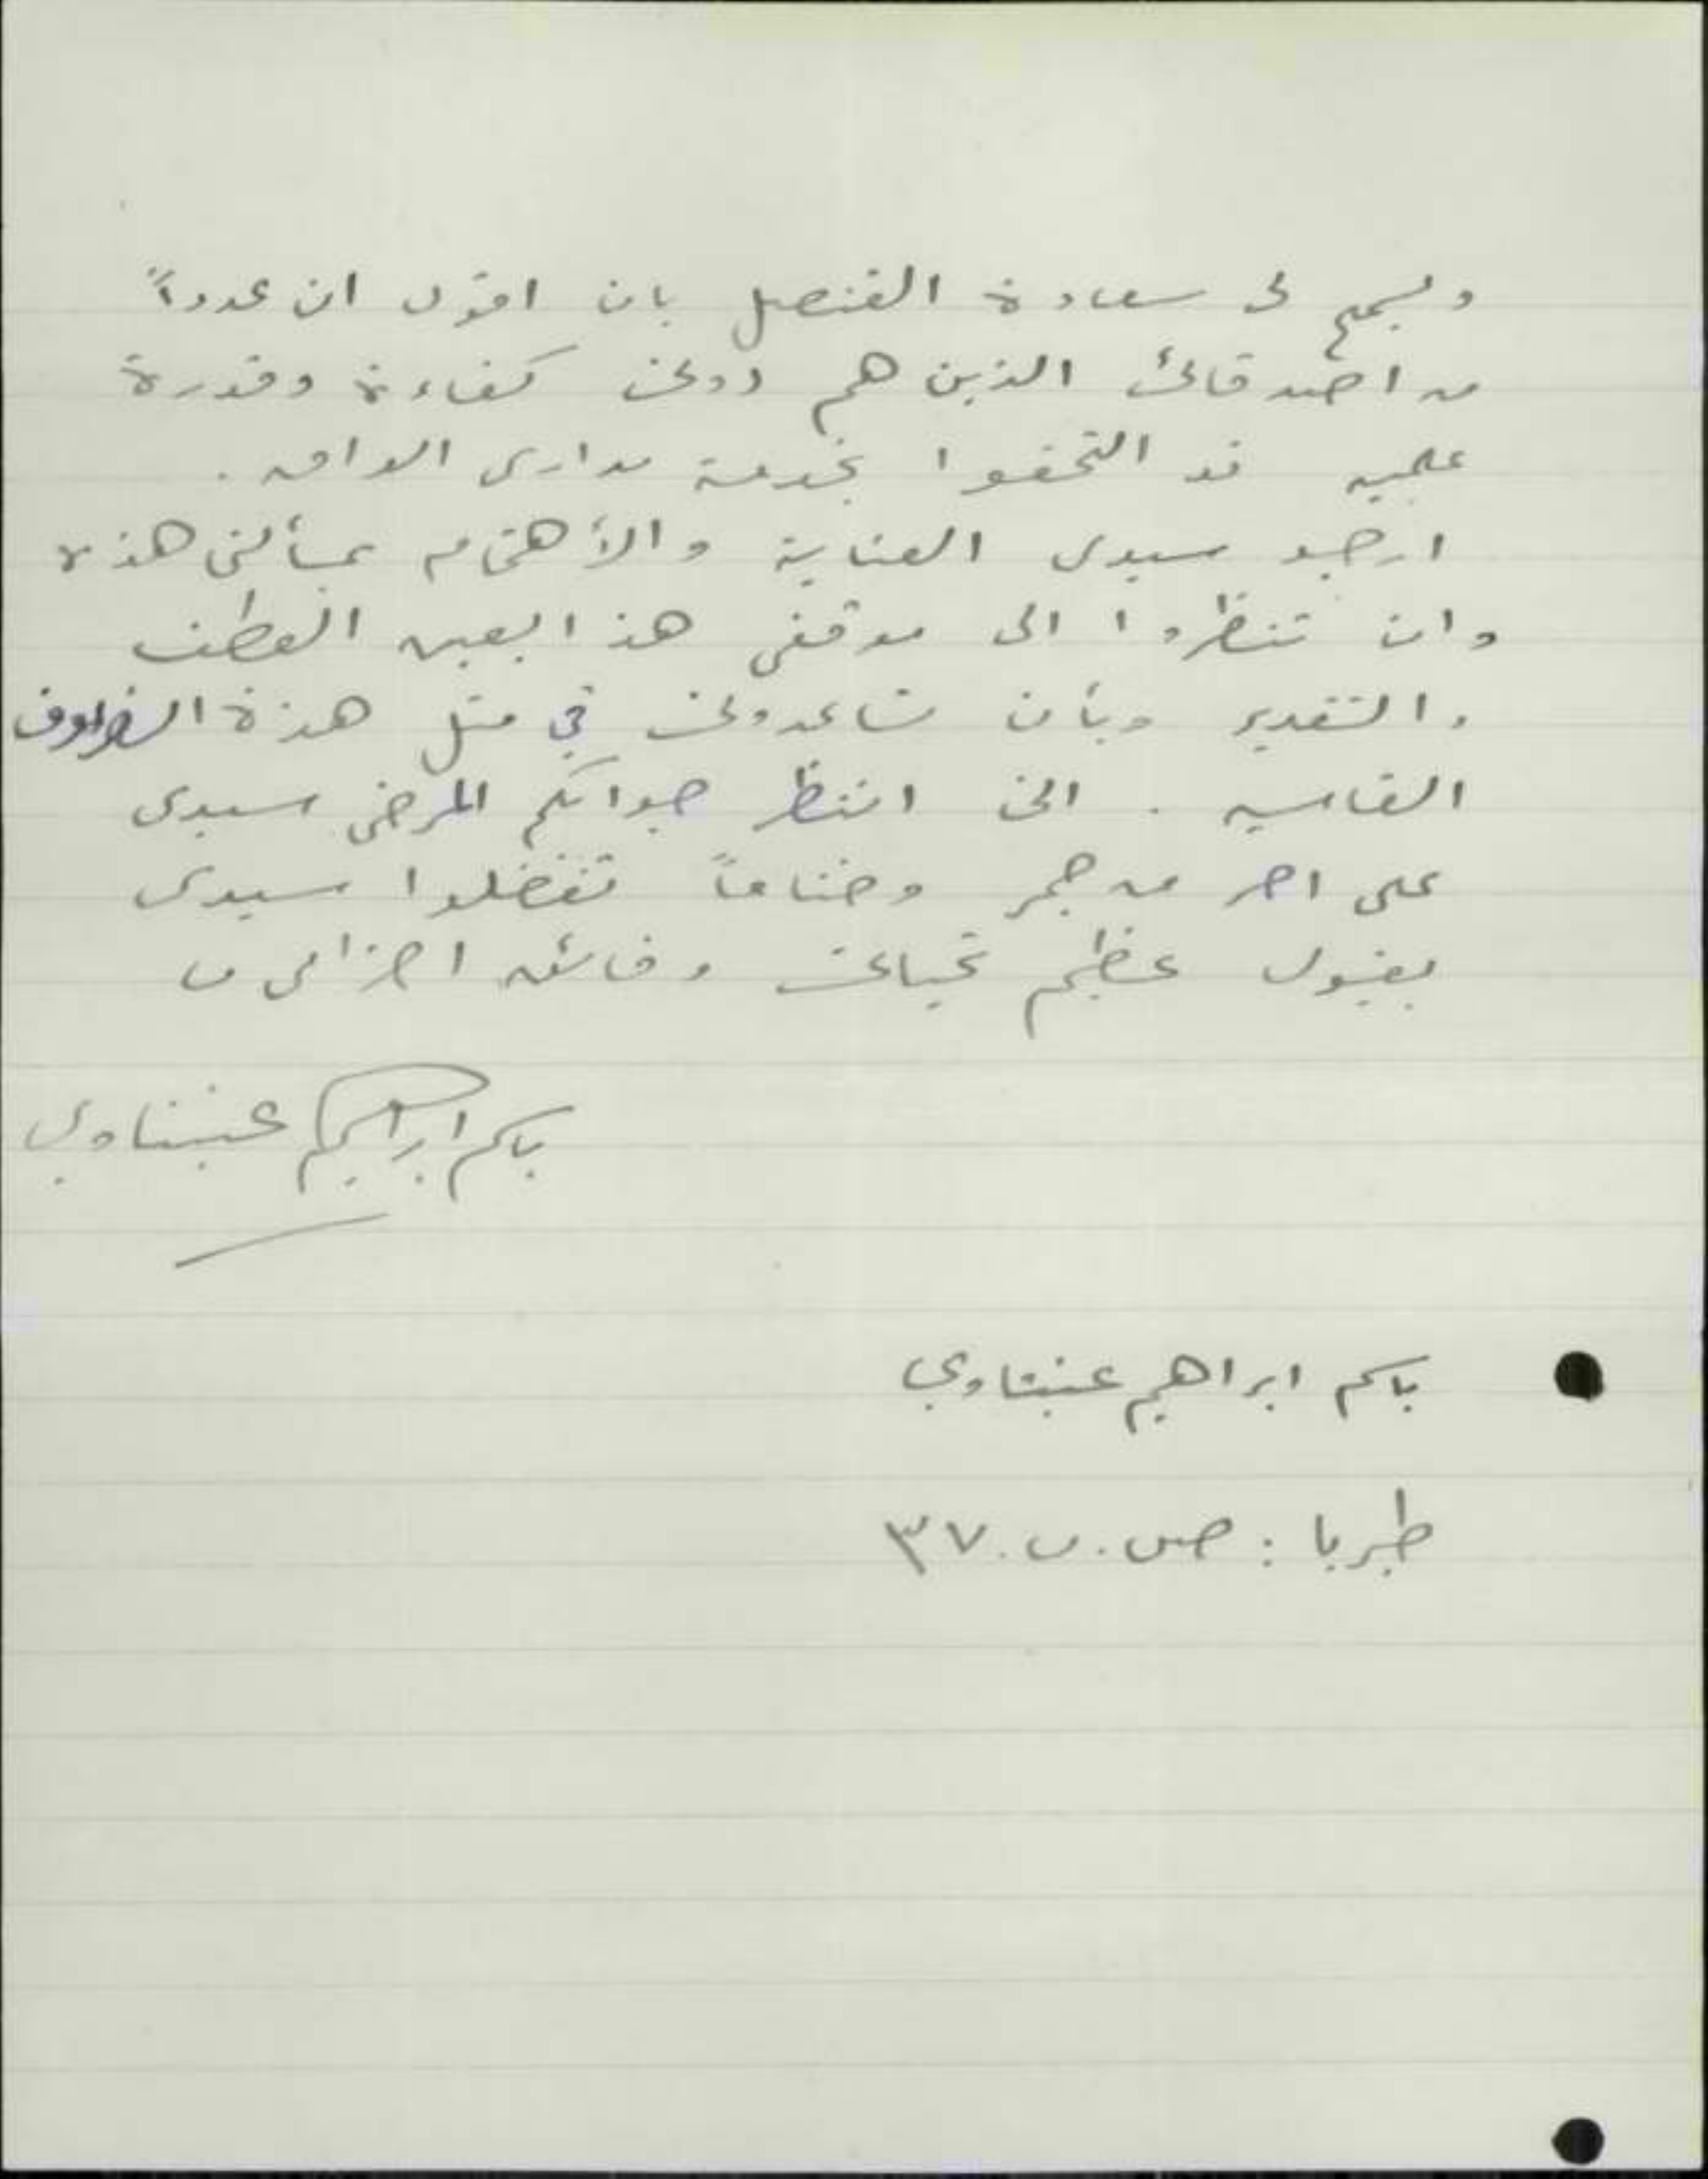 وليسمح لى سعادة القنصل بان اقول ان عدداً
من اصدقائى الذين هم دونى كفاءة وقدرة
علميه قد التحقوا بخدمة مدارس العراق.
ارجو سيدى العناية والأهتمام بمسألتى هذه
وان تنظروا الى موقفى هذا بعين العطف
والتقدير وبأن تساعدونى في مثل هذة الظروف
القاسيه. انى انتظر جوابكم المرضى سيدى
على احر من جمر وختاماً تفضلوا سيدى
بقبول عظيم تحياتى وفائق احترامى
باسم ابراهيم عنبتاوي
باسم ابراهيم عنبتاوي
طبريا: ص.ب. ٣٧